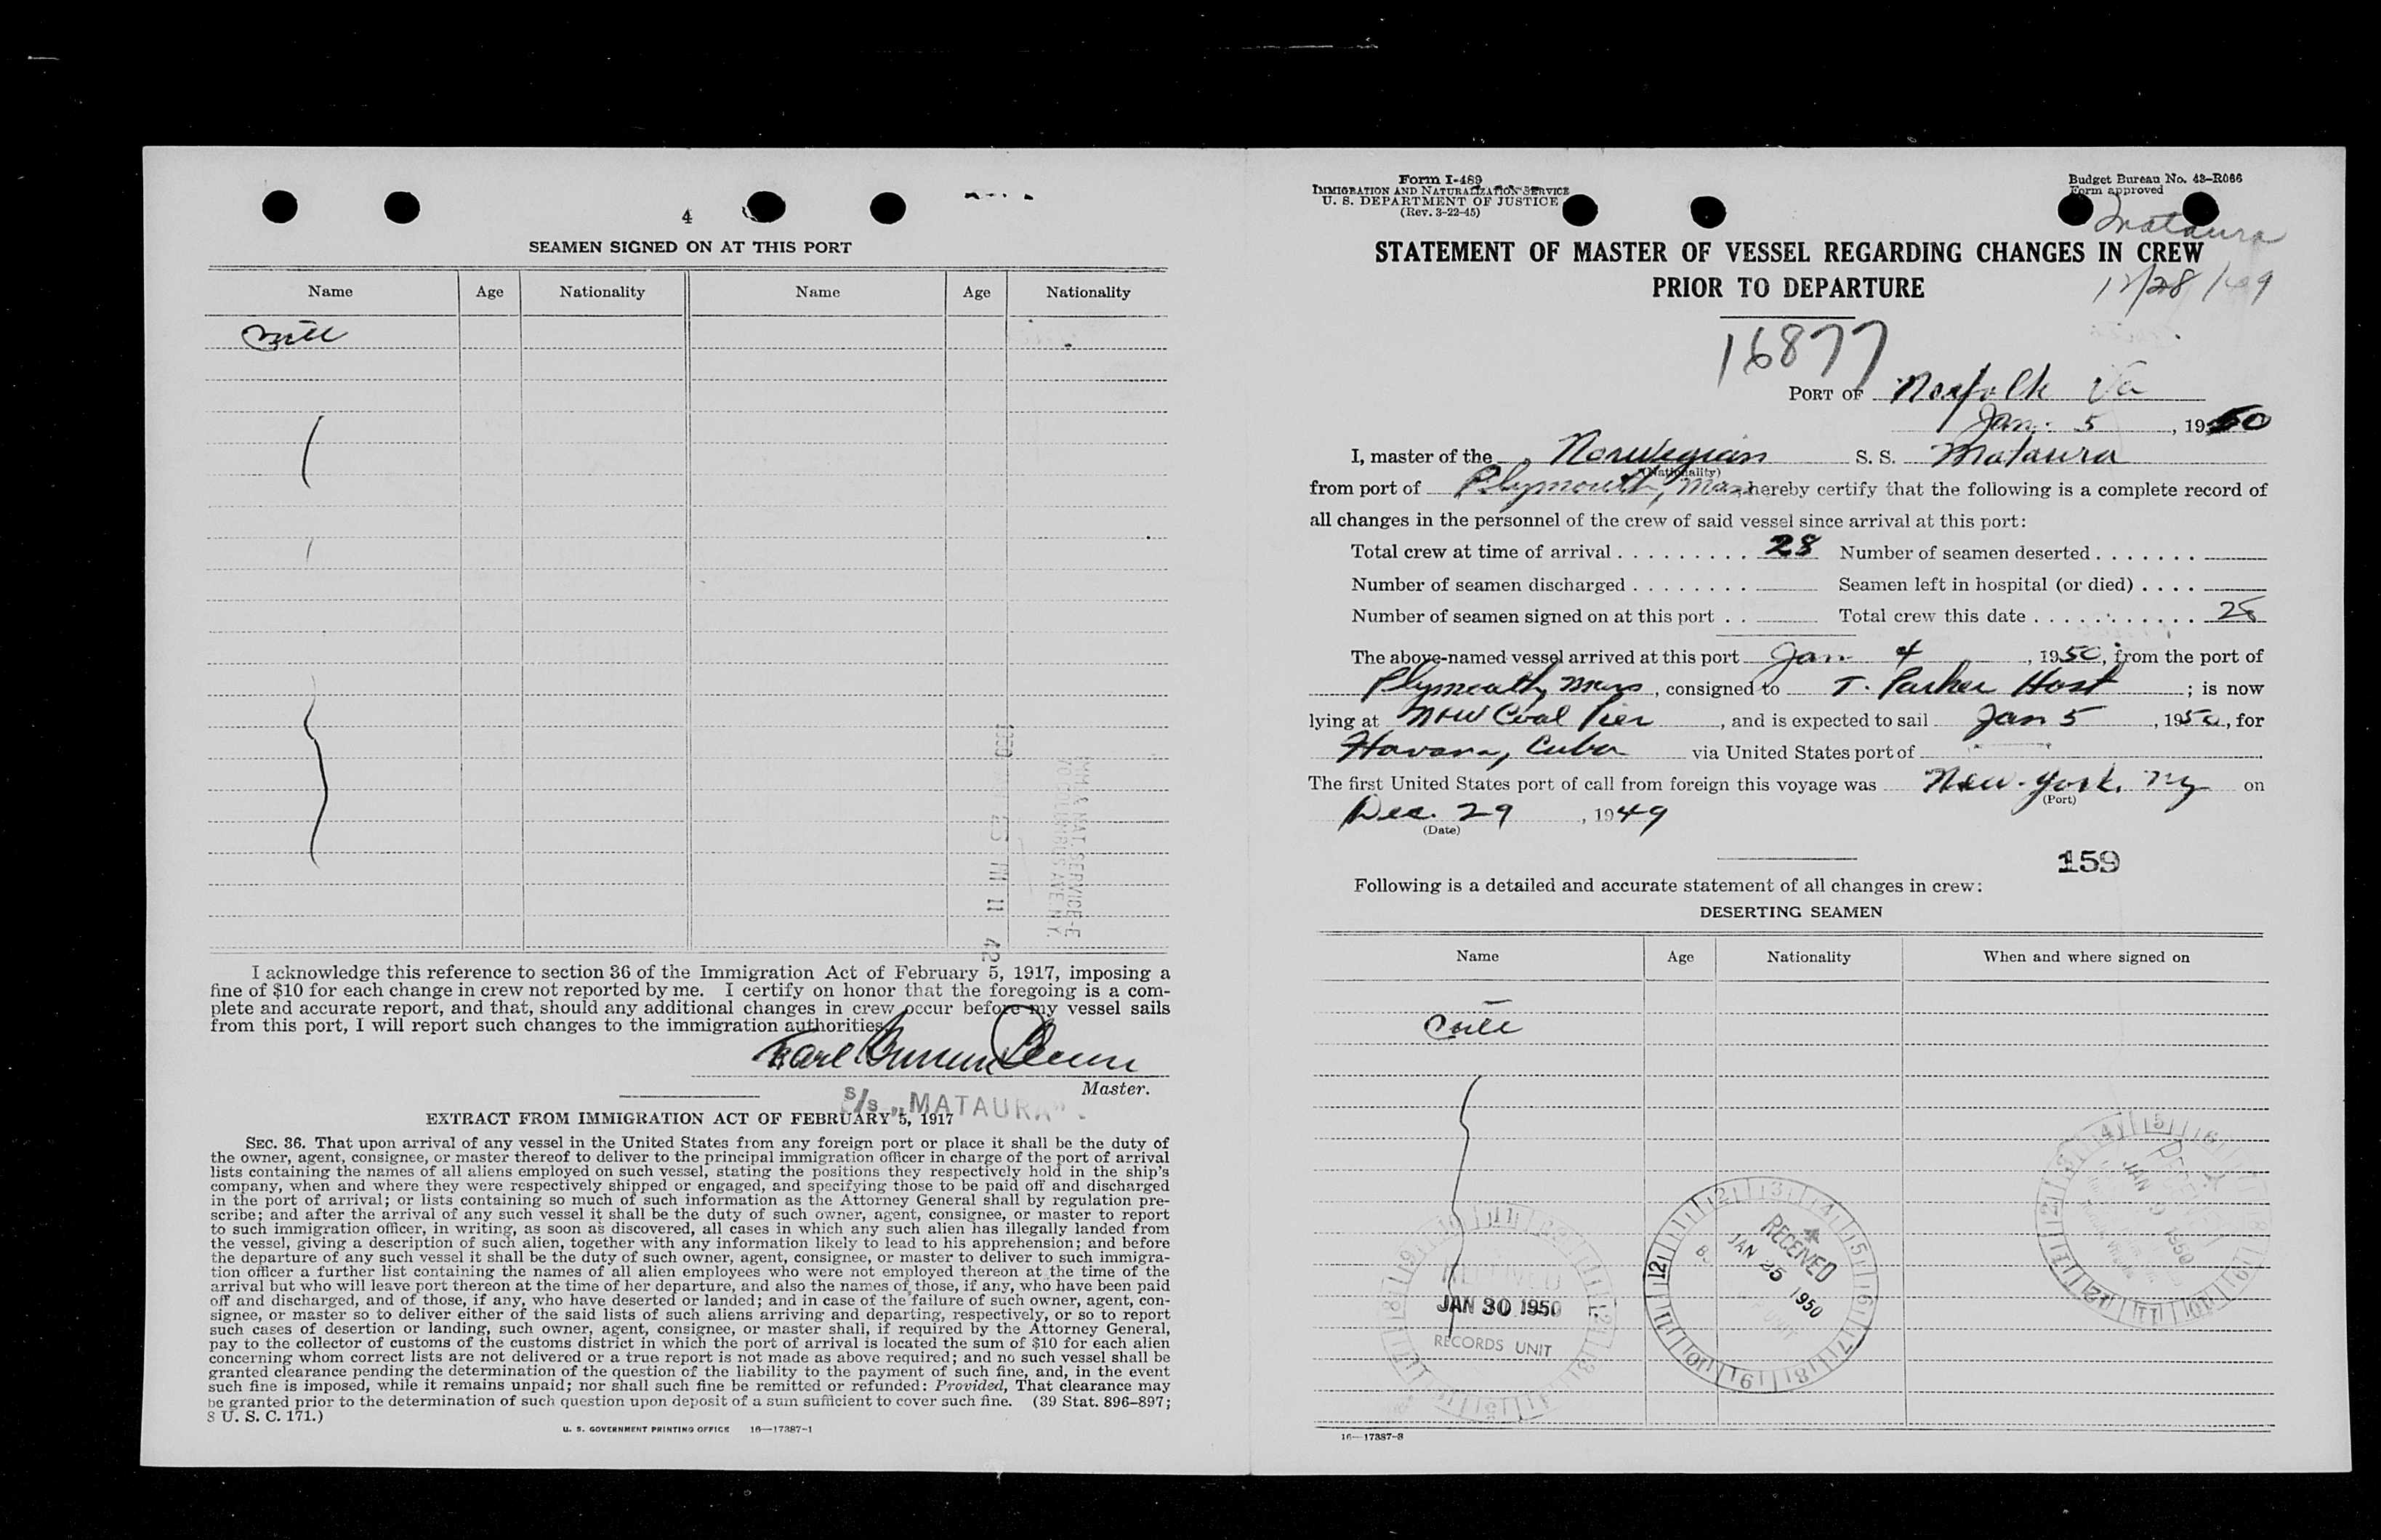 4
SEAMEN SIGNED ON AT THIS PORT
Name Age Nationality Name Age Nationality
I acknowledge this reference to section 36 of the Immigration Act of February 5, 1917, imposing a
fine of $10 for each change in crew not reported by me. I certify on honor that the foregoing is a com-
plete and accurate report, and that, should any additional changes in crew occur before my vessel sails
from this port, I will report such changes to the immigration authorities.
Karl
Master.
S/s „MATAURA”
EXTRACT FROM IMMIGRATION ACT OF FEBRUARY 5, 1917
SEC. 36. That upon arrival of any vessel in the United States from any foreign port or place it shall be the duty of
the owner, agent, consignee, or master thereof to deliver to the principal immigration officer in charge of the port of arrival
lists containing the names of all aliens employed on such vessel, stating the positions they respectively hold in the ship's
company, when and where they were respectively shipped or engaged, and specifying those to be paid off and discharged
in the port of arrival; or lists containing so much of such information as the Attorney General shall by regulation pre-
scribe; and after the arrival of any such vessel it shall be the duty of such owner, agent, consignee, or master to report
to such immigration officer, in writing, as soon as discovered, all cases in which any such alien has illegally landed from
the vessel, giving a description of such alien, together with any information likely to lead to his apprehension; and before
the departure of any such vessel it shall be the duty of such owner, agent, consignee, or master to deliver to such immigra-
tion officer a further list containing the names of all alien employees who were not employed thereon at the time of the
arrival but who will leave port thereon at the time of her departure, and also the names of those, if any, who have been paid
off and discharged, and of those, if any, who have deserted or landed; and in case of the failure of such owner, agent, con-
signee, or master so to deliver either of the said lists of such aliens arriving and departing, respectively, or so to report
such cases of desertion or landing, such owner, agent, consignee, or master shall, if required by the Attorney General,
pay to the collector of customs of the customs district in which the port of arrival is located the sum of $10 for each alien
concerning whom correct lists are not delivered or a true report is not made as above required; and no such vessel shall be
granted clearance pending the determination of the question of the liability to the payment of such fine, and, in the event
such fine is imposed, while it remains unpaid; nor shall such fine be remitted or refunded: Provided, That clearance may
be granted prior to the determination of such question upon deposit of a sum sufficient to cover such fine. (39 Stat. 896–897;
8 U. S. C. 171.)
U. S. GOVERNMENT PRINTING OFFICE 16—17387-1
Form I-489
IMMIGRATION AND NATURALIZATION SERVICE
U. S. DEPARTMENT OF JUSTICE
(Rev. 3-22-45)
Budget Bureau No. 43-R066
Form approved
Mataura
12/28/49
STATEMENT OF MASTER OF VESSEL REGARDING CHANGES IN CREW
PRIOR TO DEPARTURE
16877
PORT OF Norfolk Va
Jan. 5, 1950
I, master of the Norwegian S. S. Mataura
(Nationality)
from port of Plymouth, Mass hereby certify that the following is a complete record of
all changes in the personnel of the crew of said vessel since arrival at this port:
Total crew at time of arrival 28 Number of seamen deserted
Number of seamen discharged Seamen left in hospital (or died)
Number of seamen signed on at this port Total crew this date 28
The above-named vessel arrived at this port Jan 4, 1950, from the port of
Plymouth, Mass, consigned to T. Parker Host; is now
lying at N+W Coal Pier, and is expected to sail Jan 5, 1950, for
Havana, Cuba via United States port of
The first United States port of call from foreign this voyage was New York, NY on
(Port)
Dec. 29, 1949
(Date)
159
Following is a detailed and accurate statement of all changes in crew:
DESERTING SEAMEN
Name Age Nationality When and where signed on
RECEIVED
JAN 9 1950
RECEIVED
JAN 25 1950
RECEIVED
JAN 30 1950
RECORDS UNIT
16—17387-3